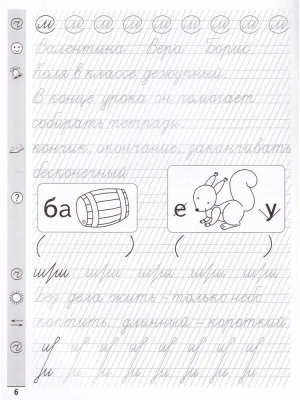 м м м м м м м м м
Валентина Вера Борис
Коля в классе дежурный.
В конце урока он помогает
собирать тетради.
кончик, окончание, заканчивать
бесконечный
ба е у
( ) ( )
Без дела жить – только небо
коптить. длинный – короткий
6